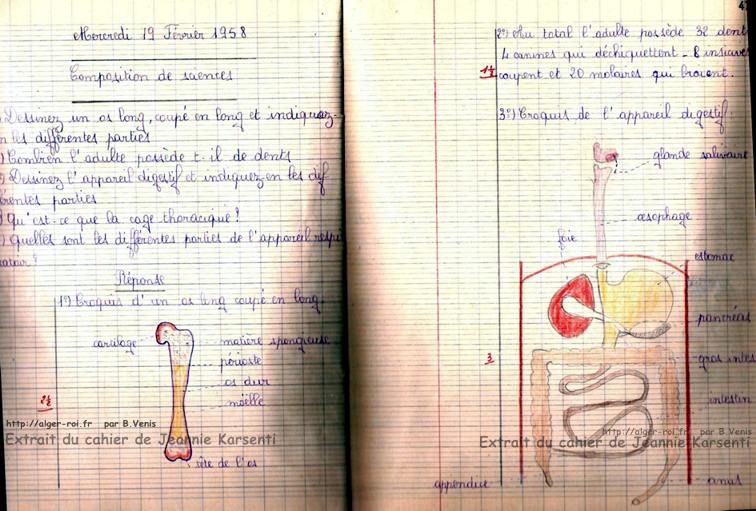 Mercredi 19 Février 1958
Composition de sciences
Dessinez un os long, coupé en long et indiquez-
en les différentes parties
) Combien l'adulte possède t-il de dents
) Dessinez l'appareil digestif et indiquez-en les dif
férentes parties
) Qu'est-ce que la cage thoracique ?
) Quelles sont les différentes parties de l'appareil respi
ratoir ?
Réponse
1º) Croquis d'un os long coupé en long
cartilage
matière spongieuse
périoste
os dur
moëlle
tête de l'os
2½
http://alger-roi.fr par B.Venis
Extrait du cahier de Jeannie Karsenti
2º) Au total l'adulte possède 32 dent
4 canines qui déchiquettent - 8 incisives
1½
coupent et 20 molaires qui broient.
3º) Croquis de l'appareil digestif :
glande salivaire
œsophage
foie
estomac
pancréas
3
gros intes
intestin
http://alger-roi.fr par B.Venis
Extrait du cahier de Jeannie Karsenti
appendice
anus
4